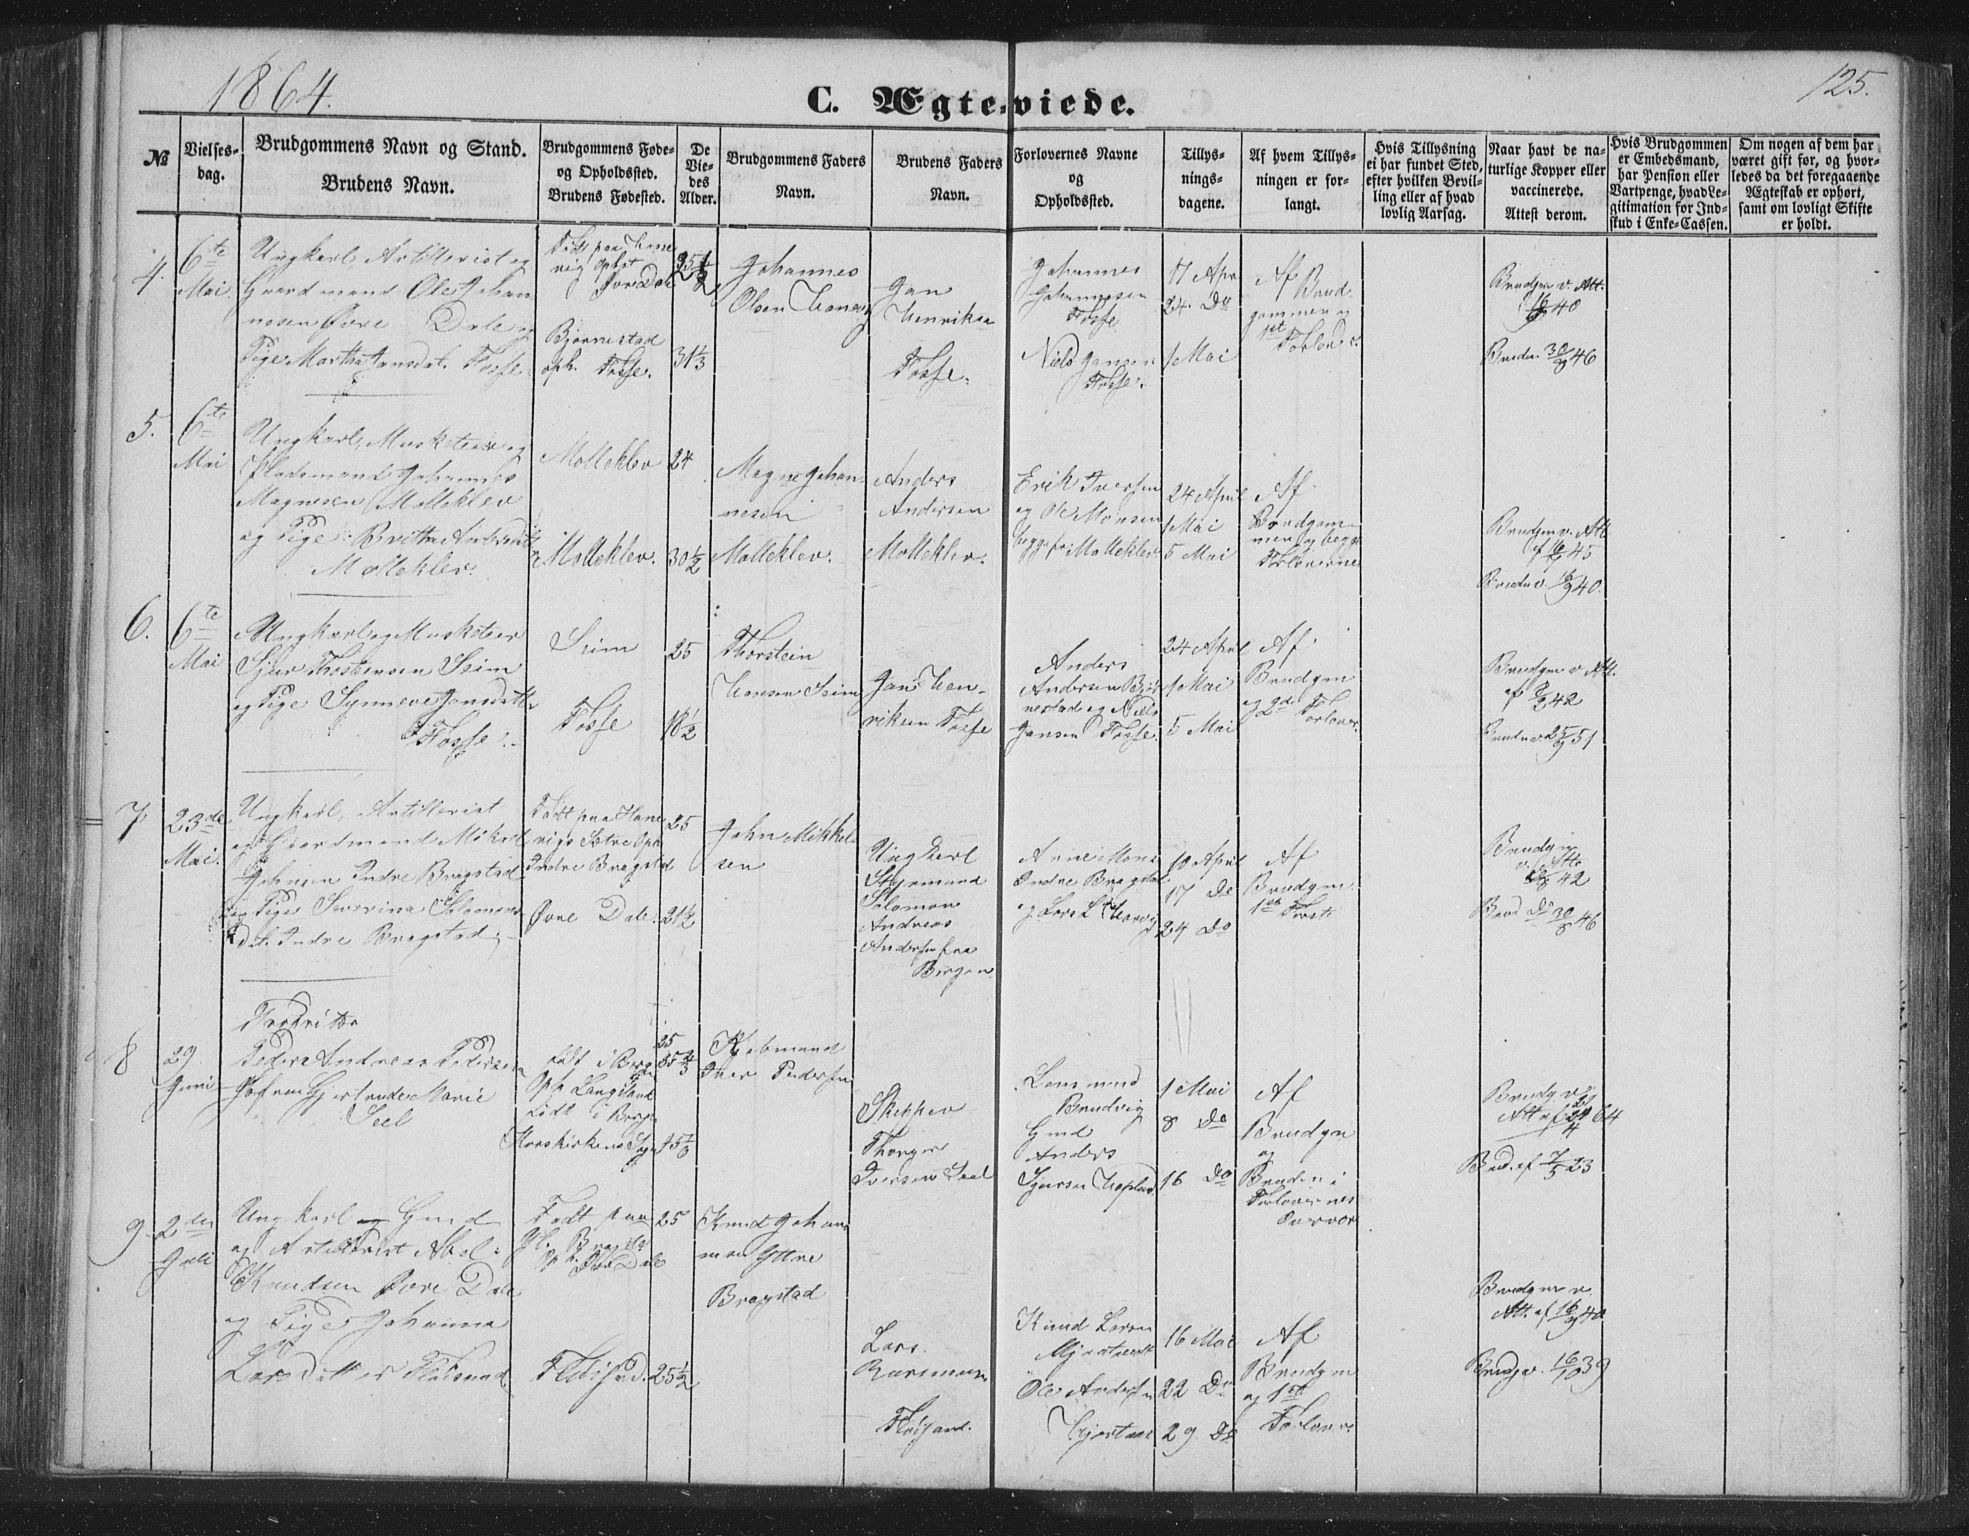 1864.
C. Ægteviede.
125.
No
Vielses-
dag.
Brudgommens Navn og Stand.
Brudens Navn.
Brudgommens Føde-
og Opholdssted.
Brudens Fødested.
De
Vie-
des
Alder.
Brudgommens Faders
Navn.
Brudens Faders
Navn.
Forlovernes Navne
og
Opholdssted.
Tillys-
nings-
dagene.
Af hvem Tillys-
ningen er for-
langt.
Hvis Tillysning
ei har fundet Sted,
efter hvilken Bevil-
ling eller af hvad
lovlig Aarsag.
Naar havt de na-
turlige Kopper eller
vaccinerede.
Attest derom.
Hvis Brudgommen
er Embedsmand,
har Pension eller
Vartpenge, hvad Le-
gitimation for Ind-
skud i Enke-Cassen.
Om nogen af dem har
været gift før, og hvor-
ledes da det foregaaende
Ægteskab er ophørt,
samt om lovligt Skifte
er holdt.
4.
6te
Mai.
Ungkarl Artillerist og
Gaardmand Ole Johan
nesen Øvre Dale og
Pige Martha Jansdat. Fosse.
Født paa
Øvre Dale
Bjørnestad
oph. Fosse.
31 1/3
Johannes
Olsen
Jan
Henriksen
Fosse.
Johannes
Johannesen
Fosse
Niels Jansen
Fosse.
17 Apr
24. Do
1 Mai
Af
Brud-
gommen og
1st
Forlover
Brudgm v. Att.
40
Brudn. 30/8 46
5.
6te
Mai
Ungkarl, Musketeer og
Pladsmand Johannes
Magnesen Molleklev
og Pige Britha Andersdatt
Molleklev.
Molleklev
Molleklev.
24
30 1/2
Magne Johan-
nesen
Molleklev.
Anders
Andersen
Molleklev.
Erik Iversen
og Ole Monsen
begge fra Molleklev
24 April
1 Mai
5 Mai
Af
Brudgom-
men og begge
Forloverne
Brudgm v. Att.
45
Brudn v. 16/9 40.
6.
6te
Mai
Ungkarl og Musketeer
Sjur Thorstensen Seim
og Pige Synneve Jansdatt
Fosse.
Seim
Fosse
25
18 1/2
Thorstein
Hansen Seim
Jan Hen-
riksen Fosse
Anders
Andersen Bjør
nestad og Niels
Jansen Fosse.
24 April
1 Mai
5 Mai
Af
Brudgm
og 2den Forlover.
Brudgm v. Att.
42
Brudn v 25/9 51
7
23de
Mai.
Ungkarl, Artillerist
og Gaardmand Mikkel
Johnsen Indre Bragstad
og Pige Severina Salamons
Dat. Indre Bragstad.
Født paa Hane
vigs Sætre Oph.
Indre Bragstad
Øvre Dale.
25
21 1/2
John Mikkel
sen
Ungkarl
Styrmand
Salamon
Andreas
Andersen fra
Bergen.
Arne Mons
Indre Bragstad
og Lars L
10 April
17 Do
24 Do
Af
Brudgm.
1st Forl.
Brudgm
v. Att.
42
Brud Do 30/8 46
8
29
Juni
Peder Andreas Pedersen
Jofru Gjertrude Marie
Seel
født i Berg
Oph Langeland
født i Berg
Korskirkens Sogn
25
Kjøbmand
Iver Pedersen
Skipper
Thorger
Iversen Seel
Lensmand
Brudvig
Gmd
Anders
Sjursen
1 Mai
8 Do
16 Do
Af
Brudgm
og
Bruden i
Forlovernes
Nærvær
Brudg v.
Att af 64
Brud. af 7/5 23
9
2den
Juli
Ungkarl og Gmd
og Artillerist Abel
Knudsen Øvre Dale
og Pige Johanna
Larsdatter
Født paa
Oph. Øvre Dale
25
25 1/2
Knud Johan
nesen Yttre
Bragstad
Lars
Rasmusen
Knud Larsen
Ole Andersen
Hjortaas
16 Mai
22 Do
29. Do
Af
Brudgm
og 1st
Forlover
Brudgm v.
Att. af 16/9 40
Brud v. 16/10 39